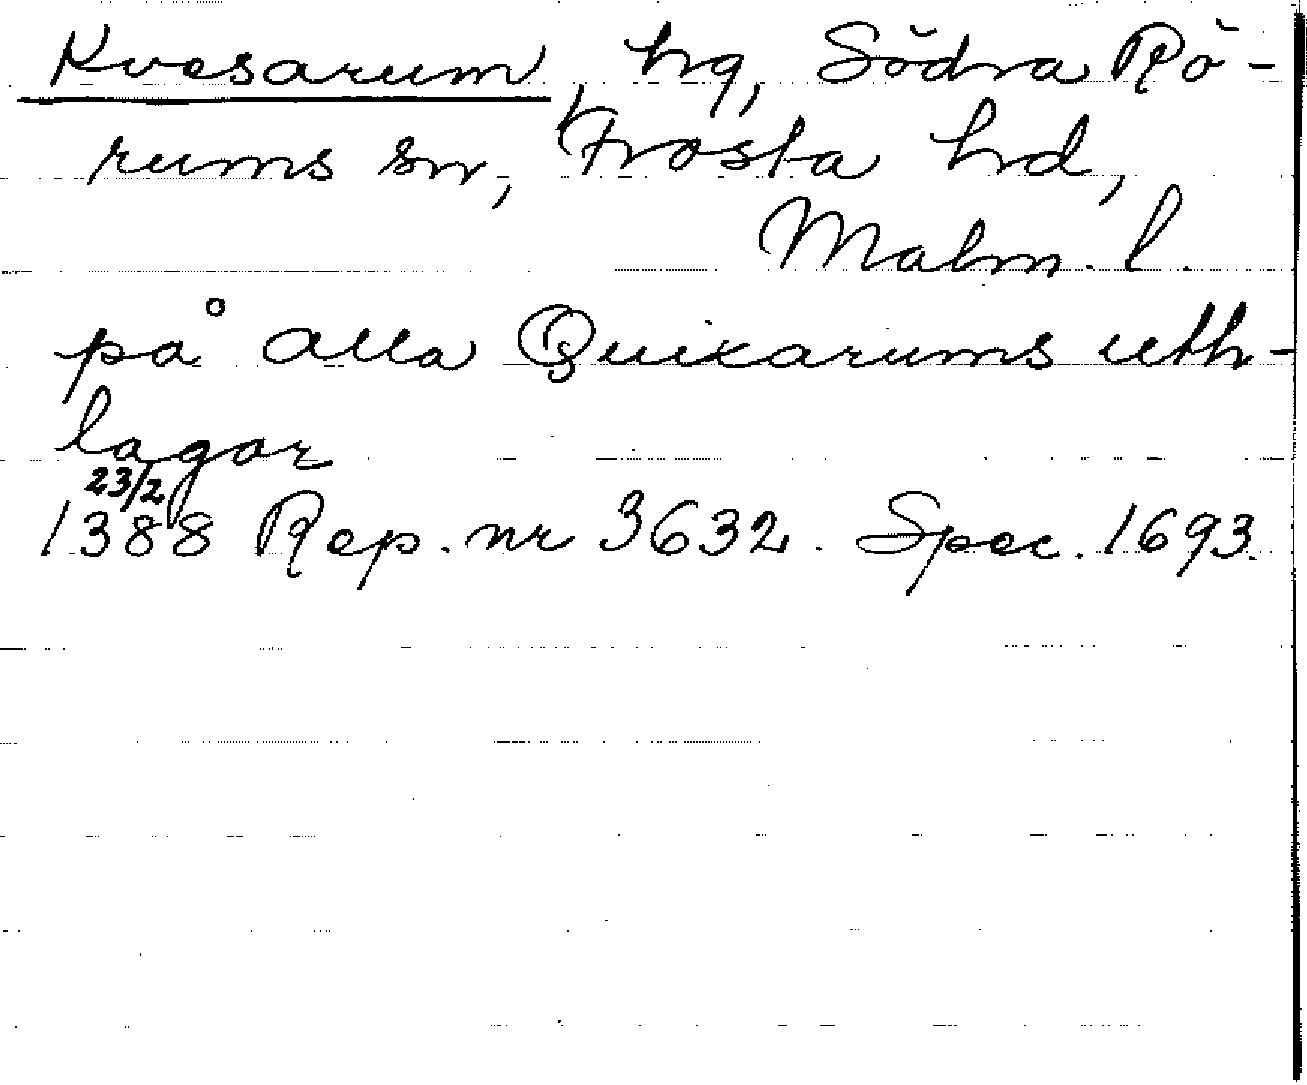 Kvesarum, hg, Södra Rö-
rums sn, Frosta hd,
Malm. l.
på alla Quixarums uth-
lagor
23/2
1388 Rep. nr 3632. Spec. 1693.